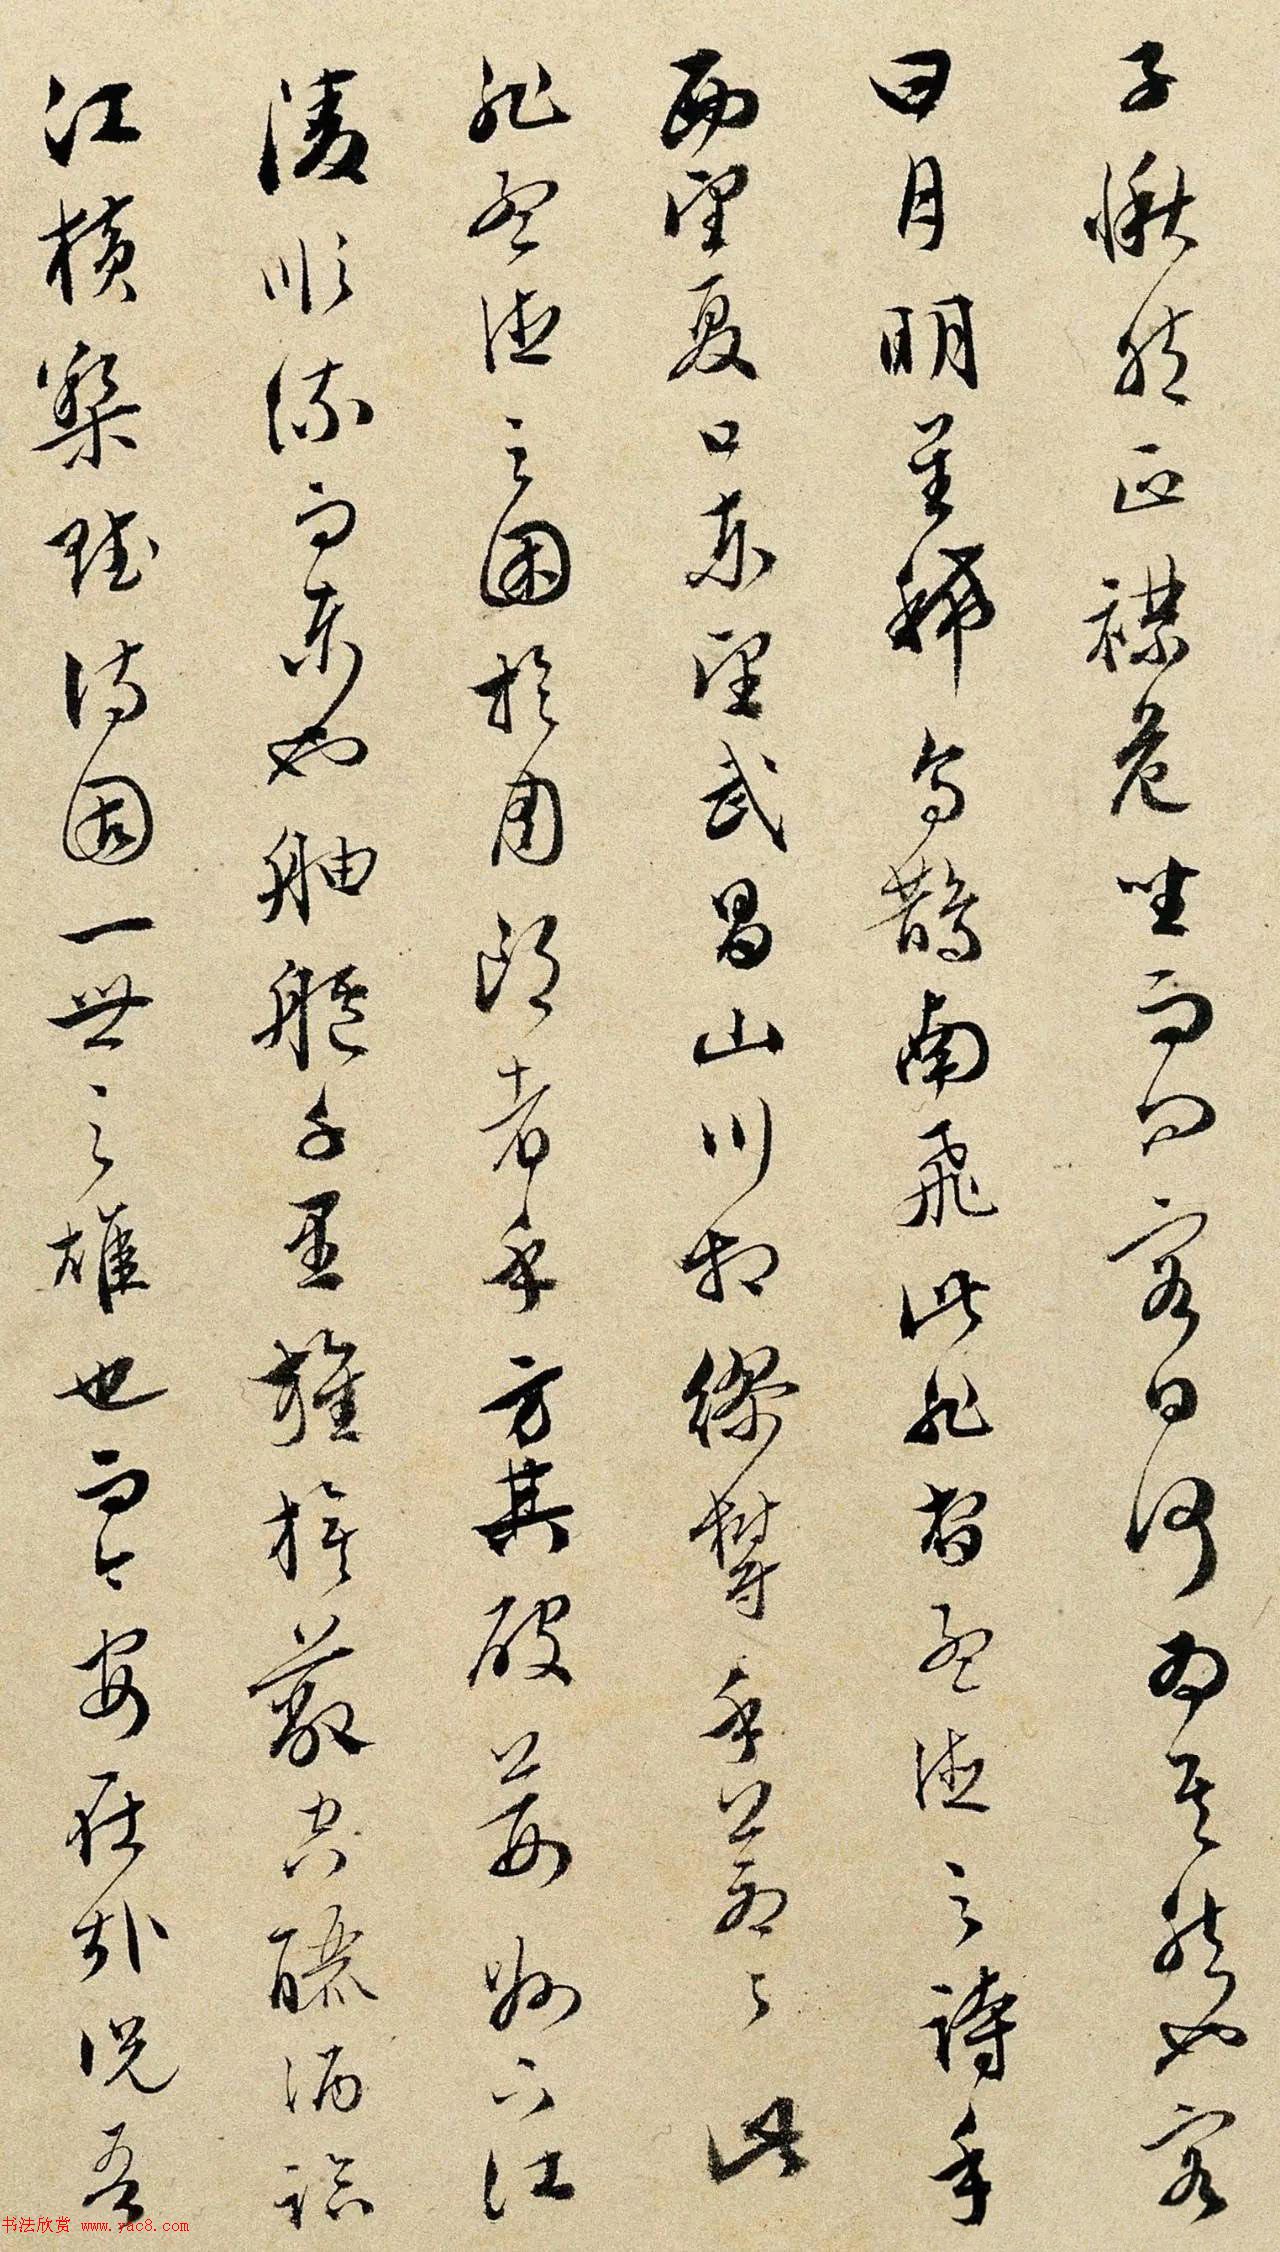 子愀然正襟危坐而问客曰何为其然也客
曰月明星稀乌鹊南飞此非曹孟德之诗乎
西望夏口东望武昌山川相缪郁乎苍々此
非孟德之困于周郎者乎方其破荆州下江
陵顺流而东也舳舻千里旌旗蔽空酾酒临
江横槊赋诗固一世之雄也而今安在哉况吾
书法欣赏 www.yac8.com